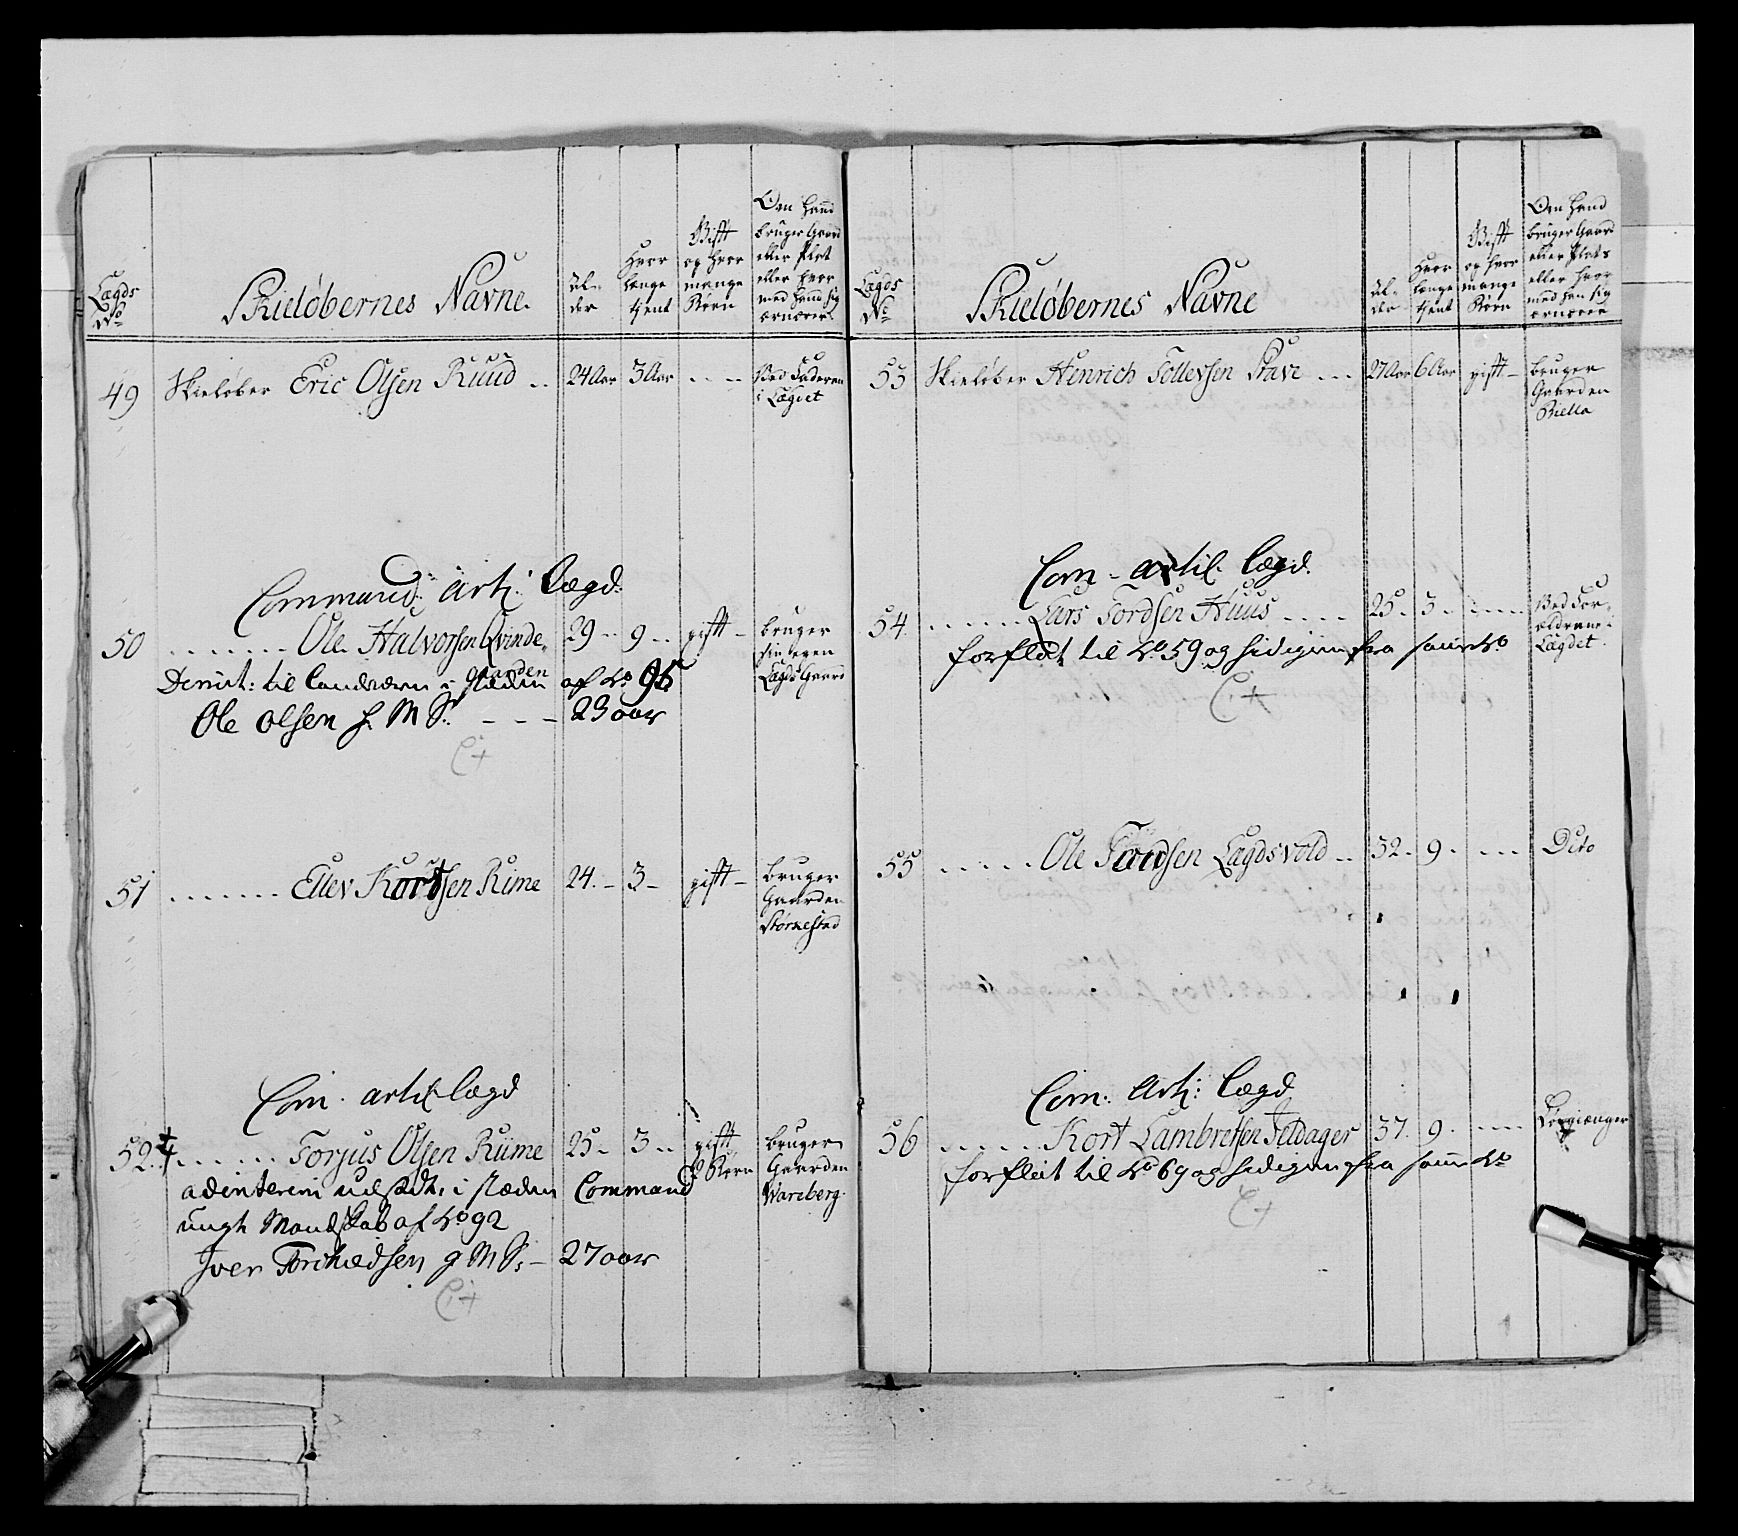 Lægds No
Skieløbernes Navne
Al-
der
Hvor
længe
tjent
Gift
og hvor
mange
Børn
Om hand
bruger Gaard
eller Plads
eller hvor
med hand sig
ernærer
49 Skieløber Eric Olsen Ruud .. 24 Aar 3 Aar .... Ved Faderen
i Lægdet
Command: art: Lægd:
50 ....... Ole Halvorsen Qvinde- 29 .. 9 .. gift - bruger
gaarden
sin egen
Lægds Gaard
Demit: til landværn i stæden af No 95
Ole Olsen M S: - - - 23 aar
C+
51 ....... Ellev Kortsen Rime 24. - 3 - gift - bruger
Gaarden
Størnestad
Com. artil lægd
52. ...... Torjus Olsen Riime 25 - 3 .. gift bruger
2 Børn Gaarden
Wareberg.
ad interim udsadt, i stæden Command
ungt Mandskab af No 92
Iver g M S: - 27 aar
C+
Lægds No
Skieløbernes Navne
Al-
der
Hvor
længe
tjent
Gift
og hvor
mange
Børn
Om hand
bruger Gaard
eller Plads
eller hvor
med han sig
ernærer
53 Skieløber Hinrich Tollevsen ... 27 Aar 6 Aar gift - bruger
Gaarden
Birlla
Com - artil. Lægd.
54. ...... Lars Tordsen Huus .... 25. 3 .. ..... Ved For-
ældrene i
Lægdet.
forflot til No 59 og hidigien fra samme No
C+
55 ..... Ole Tordsen Lægdsvold .. 32. 9. .... Dito
Com: Art: Lægd
56 ..... Kort Lambretsen Fildager 37. 9. .....
forfleit til No 69 og hidigien fra samme No
C+